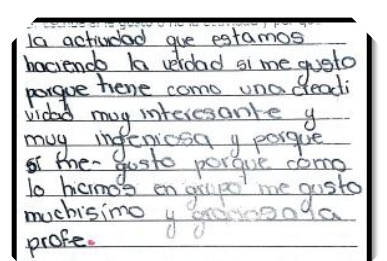 la actividad que estamos
haciendo la verdad si me gusto
porque tiene como una creati
vidad muy interesante y
muy ingeniosa y porque
si me gusto porque como
lo hicimos en grupo me gusto
muchisimo y gracias a la
profe.